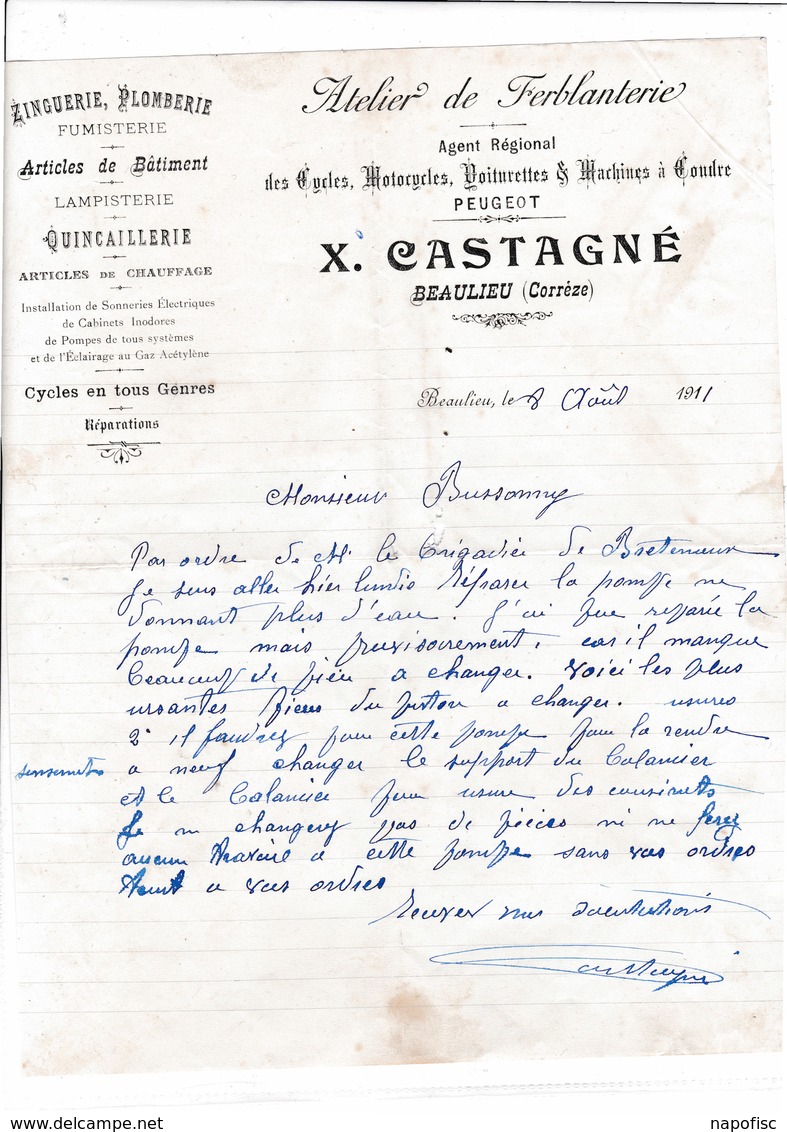 ZINGUERIE, PLOMBERIE
FUMISTERIE
Articles de Bâtiment
LAMPISTERIE
QUINCAILLERIE
ARTICLES DE CHAUFFAGE
Installation de Sonneries Électriques
de Cabinets Inodores
de Pompes de tous systèmes
et de l'Éclairage au Gaz Acétylène
Cycles en tous Genres
Réparations
Atelier de Ferblanterie
Agent Régional
des Cycles, Motocycles, Voiturettes & Machines à Coudre
PEUGEOT
X. CASTAGNÉ
BEAULIEU (Corrèze)
Beaulieu, le 8 Août 1911
Monsieur
Par ordre de Mr le Brigadier de Bretenoux
Je suis aller hier lundis Réparer la pompe ne
donnant plus d'eau. J'ai pue reparé la
pompe mais provisoirement, car il manque
Beaucoup de pieces a changer. voici les plus
ursantes pieces du piston a changer. usures
2° il faudrez pour cette pompe pour la rendre
a neuf changer le support du Balancier
et le Balancier pour usure des cousinets
Je n changerez pas de pièces ni ne ferez
aucun travail a cette pompe sans vos ordres
tout a vos ordres
Recever mes
Castagné
napofisc